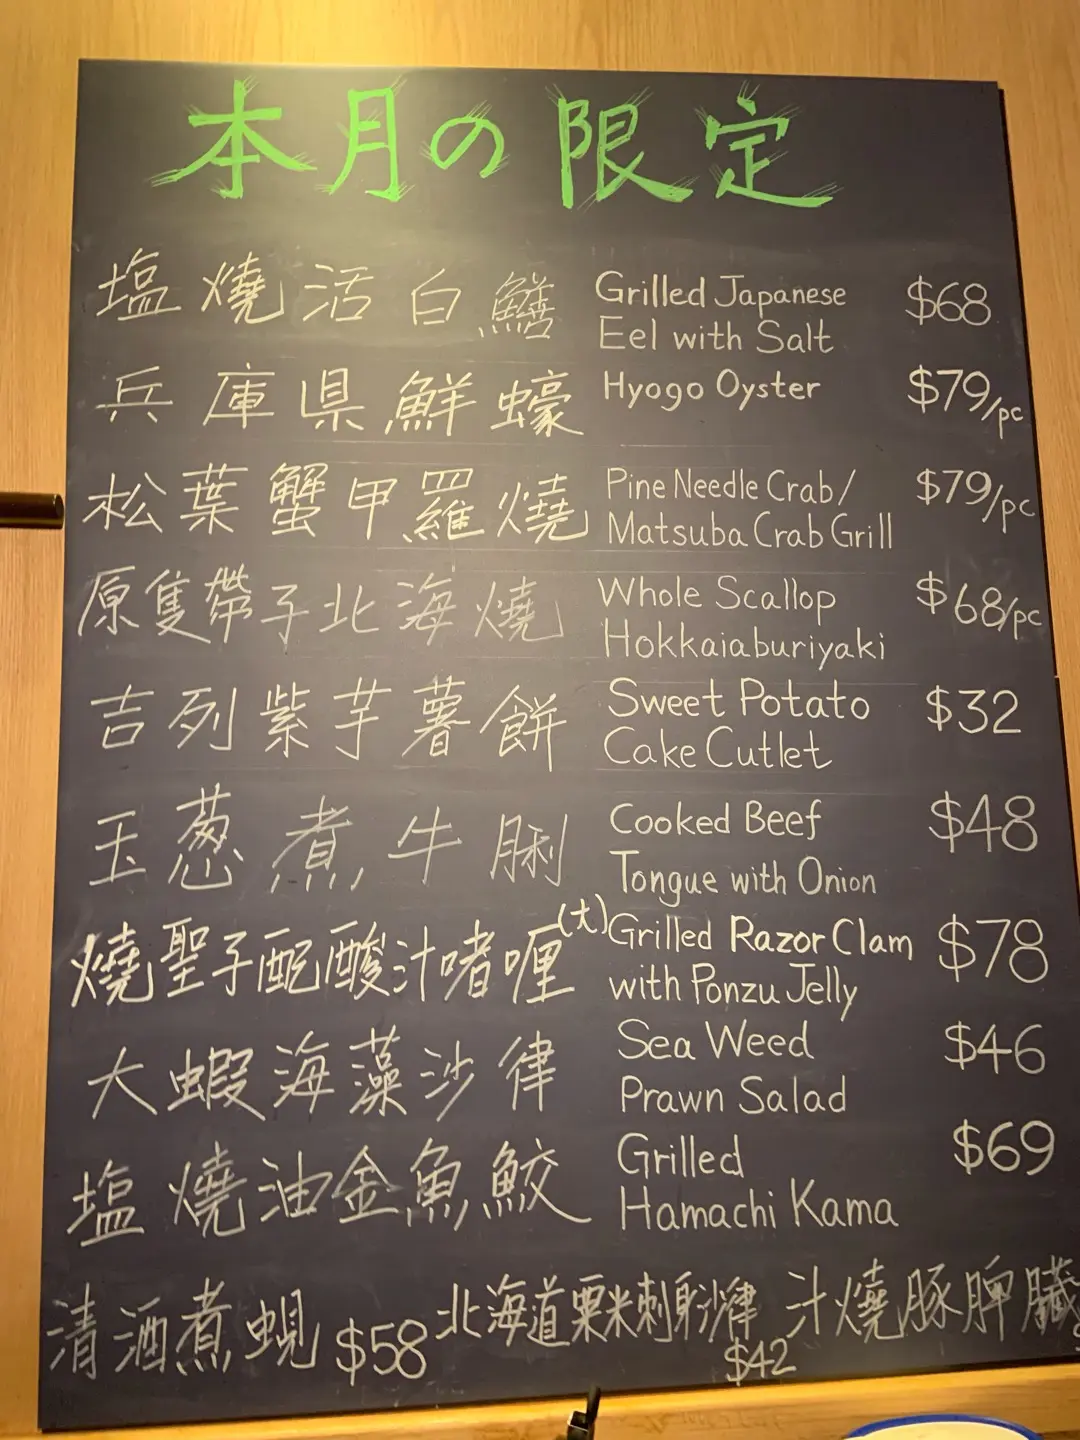 本月の限定
塩燒活白鱔 Grilled Japanese Eel with Salt $68
兵庫県鮮蠔 Hyogo Oyster $79/pc
松葉蟹甲羅燒 Pine Needle Crab/ Matsuba Crab Grill $79/pc
原隻帶子北海燒 Whole Scallop Hokkaiaburiyaki $68/pc
吉列紫芋薯餅 Sweet Potato Cake Cutlet $32
玉葱煮牛脷 Cooked Beef Tongue with Onion $48
燒聖子配酸汁啫喱(大) Grilled Razor Clam with Ponzu Jelly $78
大蝦海藻沙律 Sea Weed Prawn Salad $46
塩燒油金魚鮫 Grilled Hamachi Kama $69
清酒煮蜆 $58 北海道粟米刺身沙律 $42 汁燒豚脾臓